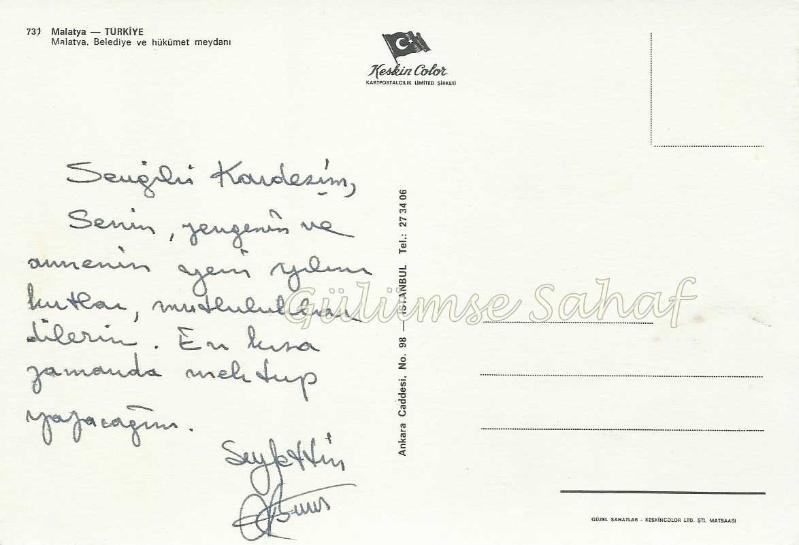 731 Malatya — TÜRKİYE
Malatya. Belediye ve hükümet meydanı
Keskin Color
KARTPOSTALCILIK LİMİTED ŞİRKETİ
Sevgili Kardeşim,
Senin, yengenin ve
annenin yeni yılını
kutlar, mutluluklar
dilerim. En kısa
zamanda mektup
yazacağım.
Seyfettin
Ankara Caddesi, No. 98 — İSTANBUL Tel.: 27 34 06
Gülümse Sahaf
GÜZEL SANATLAR - KESKİNCOLOR LTD. ŞTİ. MATBAASI